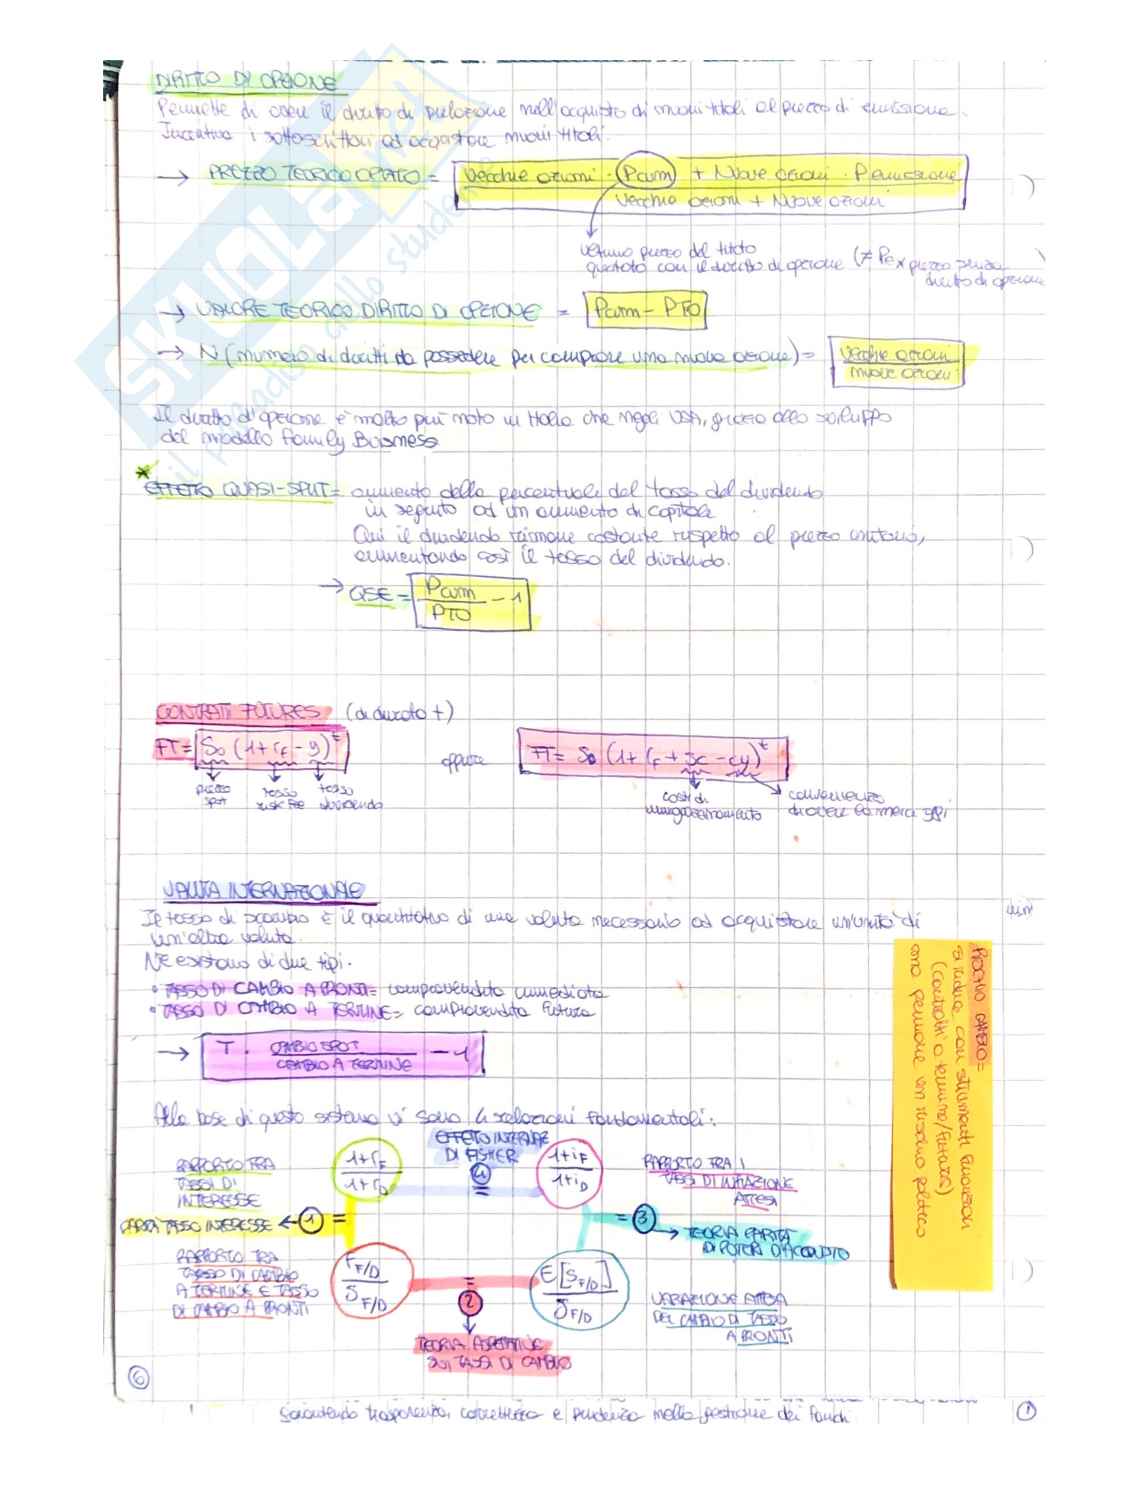 DIRITTO DI OPZIONE
Permette di avere il diritto di prelazione nell'acquisto di nuovi titoli al prezzo di emissione.
Incentiva i sottoscrittori ad acquistare nuovi titoli.
→ PREZZO TEORICO OPTATO = Vecchie azioni · Pcum + Nuove azioni · Pemissione
Vecchie azioni + Nuove azioni
ultimo prezzo del titolo
quotato con il diritto di opzione (≠ Pex prezzo senza
diritto di opzione
→ VALORE TEORICO DIRITTO DI OPZIONE = Pcum - PTO
→ N (numero di diritti da possedere per comprare una nuova azione) = Vecchie azioni
nuove azioni
Il diritto d'opzione è molto più noto in Italia che negli USA, grazie allo sviluppo
del modello Family Business
* EFFETTO QUASI-SPLIT = aumento della percentuale del tasso del dividendo
in seguito ad un aumento di capitale
Qui il dividendo rimane costante rispetto al prezzo unitario,
aumentando così il tasso del dividendo.
→ QSE = Pcum
PTO - 1
CONTRATTI FUTURES (di durata t)
FT = S0 (1 + rF - y)^t oppure FT = S0 (1 + rF + sc - cy)^t
prezzo spot
tasso risk free
tasso dividendo
costi di
immagazzinamento
convenienza
di avere la merce oggi
VALUTA INTERNAZIONALE
Il tasso di scambio è il quantitativo di una valuta necessario ad acquistare un'unità di
un'altra valuta.
Ne esistono di due tipi.
• TASSO DI CAMBIO A PRONTI = compravendita immediata
• TASSO DI CAMBIO A TERMINE = compravendita futura
→ T · CAMBIO SPOT
CAMBIO A TERMINE - 1
RISCHIO CAMBIO =
si riduce con strumenti finanziari
(contratti a termine/futures)
ma permane un rischio politico
Alla base di questo sistema vi sono 4 relazioni fondamentali:
EFFETTO INTERNAZ.
DI FISHER
4 =
RAPPORTO TRA
TASSI DI
INTERESSE
1 + rF
1 + rD
1 + iF
1 + iD
RAPPORTO TRA I
TASSI DI INFLAZIONE
ATTESI
PARITÀ TASSO INTERESSE ← 1 =
= 3
→ TEORIA PARITÀ
DI POTERI D'ACQUISTO
RAPPORTO TRA
TASSO DI CAMBIO
A TERMINE E TASSO
DI CAMBIO A PRONTI
FF/D
SF/D
=
2
E[SF/D]
SF/D
VARIAZIONE ATTESA
DEL CAMBIO DI TASSO
A PRONTI
TEORIA ASPETTATIVE
SUI TASSI DI CAMBIO
6
Garantendo trasparenza, correttezza e prudenza nella gestione dei fondi
1
SKUOLA.net
il paradiso dello studente